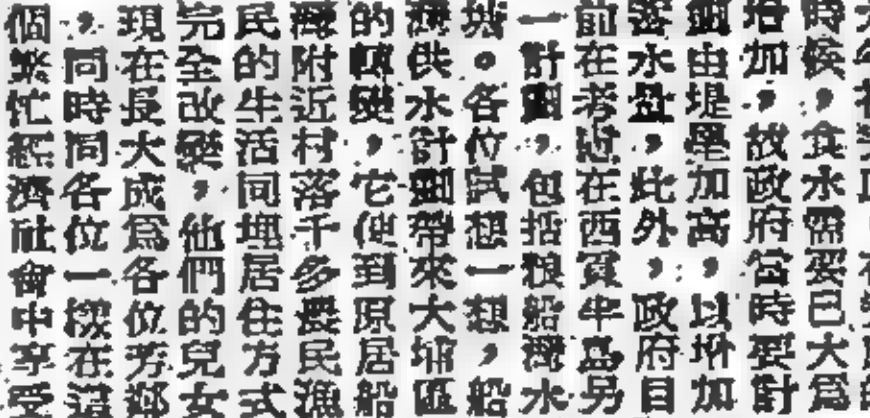 時候,食水需要已大爲
增加,故政府當時要計
由堤壆加高,以增加
水盆,此外,政府目
前在考慮在西貢半島另
一計劃,包括糧船灣水
。各位試想一想,船
灣供水計劃帶來大埔區
的轉變,它使到原居船
灣附近村落千多農民漁
民的生活同埋居住方式
完全改變,他們的兒女
現在長大成爲各位芳鄰
,同時同各位一樣在這
個繁忙經濟社會中享受